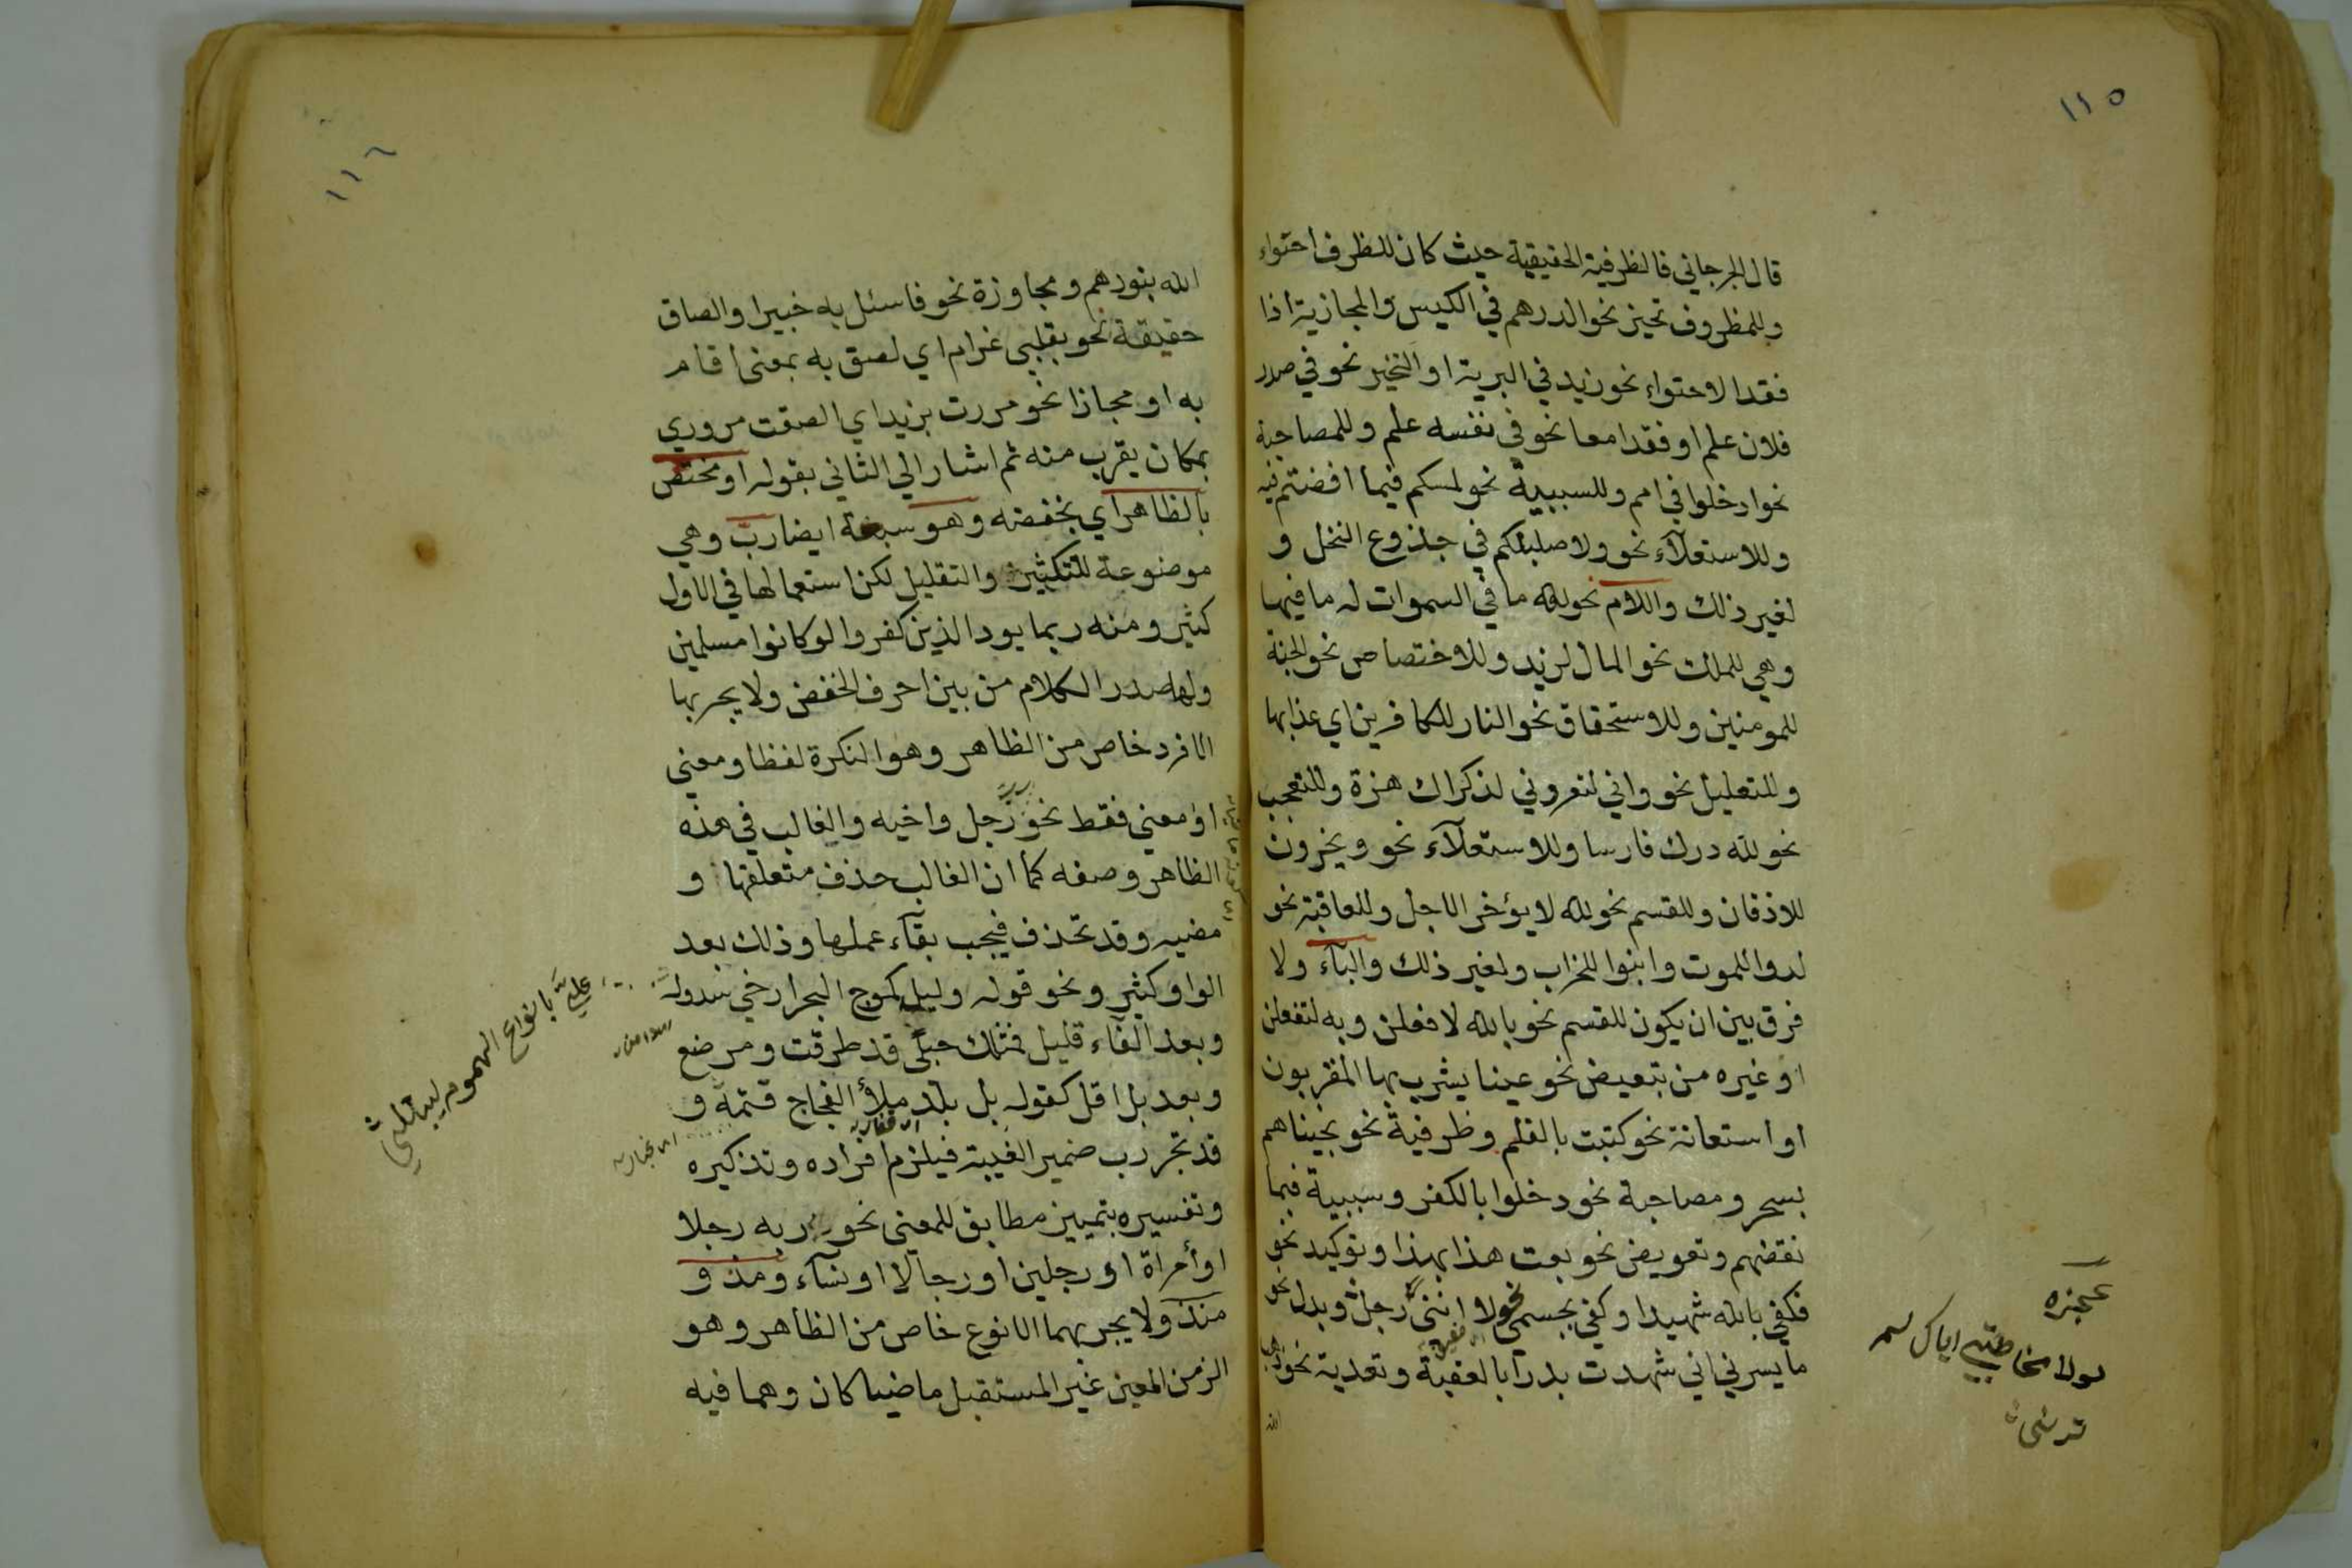 ١١٥
قال الجرجاني فالظرفية الحقيقية حيث كان للظرف احتواء
وللمظروف تحيز نحو الدرهم في الكيس والمجازية اذا
فقد الاحتواء نحو زيد في البرية او التحيز نحو في صدر
فلان علم او فقدا معا نحو في نفسه علم وللمصاحبة
نحو ادخلوا في امم وللسببية نحو لمسكم فيما افضتم فيه
وللاستعلآء نحو ولاصلبنكم في جذوع النخل و
لغير ذلك واللام نحو لله ما في السموات له ما فيها
وهي للملك نحو المال لزيد وللاختصاص نحو الجنة
للمومنين وللاستحقاق نحو النار للكافرين اي عذابها
وللتعليل نحو واني لتعروني لذكراك هزة وللتعجب
نحو لله درك فارسا وللاستعلآء نحو ويخرون
للاذقان وللقسم نحو لله لا يؤخر الاجل وللعاقبة نحو
لدوا للموت وابنوا للخراب ولغير ذلك والبآء ولا
فرق بين ان يكون للقسم نحو بالله لافعلن وبه لتفعلن
او غيره من تبعيض نحو عينا يشرب بها المقربون
او استعانة نحو كتبت بالقلم وظرفية نحو نجيناهم
بسحر ومصاحبة نحو دخلوا بالكفر وسببية فبما
نقضهم وتعويض نحو بعت هذا بهذا وتوكيد نحو
فكفي بالله شهيدا وكفي بجسمي نحولا انني رجل وبدل نحو
ما يسرني اني شهدت بدرا بالعقبة وتعدية نحو ذهب
الله
لولا مخاطبتي اياك لم
ترني
١١٦
الله بنورهم ومجاوزة نحو فاسئل به خبيرا والصاق
حقيقة نحو بقلبي غرام اي لصق به بمعنى اقام
به او مجازا نحو مررت بزيد اي الصقت مروري
بمكان يقرب منه ثم اشار الي الثاني بقوله او مختص
بالظاهر اي بخفضه وهو سبعة ايضا ربّ وهي
موضوعة للتكثير والتقليل لكن استعمالها في الاول
كثير ومنه ربما يود الذين كفروا لو كانوا مسلمين
ولها صدر الكلام من بين احرف الخفض ولا يجر بها
الا فرد خاص من الظاهر وهو النكرة لفظا ومعني
او معني فقط نحو رب رجل واخيه والغالب في هذه
الظاهر وصفه كما ان الغالب حذف متعلقها و
مضيه وقد تحذف فيجب بقآء عملها وذلك بعد
الواو كثير ونحو قوله وليل كموج البحر ارخي سدوله
وبعد الفآء قليل فمثلك حبلى قد طرقت ومرضع
وبعد بل اقل كقوله بل بلد ملأ الفجاج قتمه و
قد تجر رب ضمير الغيبة فيلزم افراده وتذكيره
وتفسيره بتمييز مطابق للمعنى نحو ربه رجلا
او أمراة او رجلين او رجالا او نسآء ومذ و
منذ ولا يجر بهما الا نوع خاص من الظاهر وهو
الزمن المعين غير المستقبل ماضيا كان وهما فيه
عليّ بانواع الهموم ليبتلي